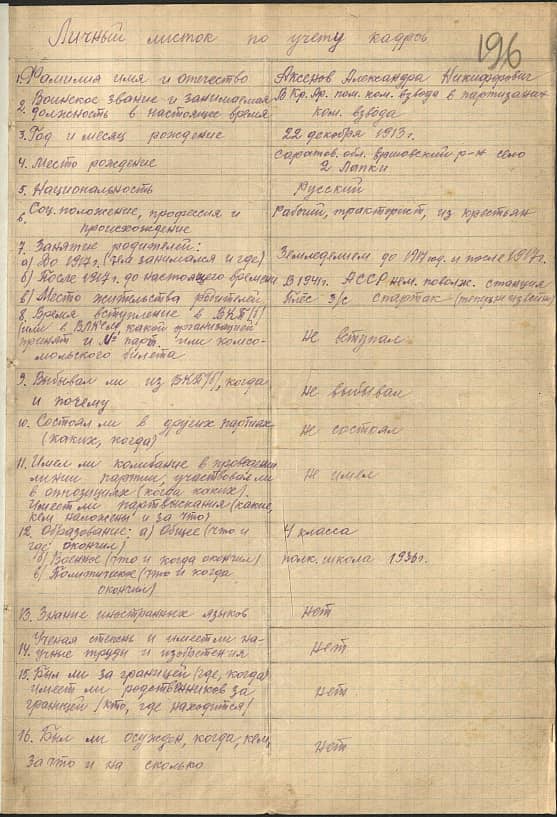 Личный листок по учету кадров
196
1. Фамилия имя и отчество Аксенов Александра Никифорович
2. Воинское звание и занимаемая должность в настоящее время В Кр. Ар. пом. ком. взвода в партизанах ком. взвода
3. Год и месяц рождение 22 декабря 1913 г.
4. Место рождение Саратов. обл. р-н село 2 Лапки
5. Национальность Русский
6. Соц. положение, профессия и происхождение Рабочий, тракторист, из крестьян
7. Занятее родителей:
а) До 1917 г. (чем занимался и где) Земледелием до 1917 год. и после 1917 г.
б) После 1917 г. до настоящего времени В 1941 г. АССР нем. поволж. станция
в) Место жительства родителей з/с спартак
8. Время вступление в ВКП(б)
(или в ВЛКСМ, какой организацией
принят и № парт. или комсо-
мольского билета Не вступал
9. Выбывал ли из ВКП(б), когда
и почему Не выбывал
10. Состоял ли в других партиях
(каких, когда) Не состоял
11. Имел ли колибание в проведении
линии партии, участвовал ли
в оппозициях (когда каких).
Имеет ли партвзыскания (какие,
кем наложены и за что) Не имел
12. Образование: а) Общее (что и
где окончил) 4 класса
б) Военное (что и когда окончил) полк. школа 1936 г.
в) Политическое (что и когда
окончил)
13. Знание иностранных языков Нет
14. Ученая степень и имеет ли на-
учные труды и изобретения Нет
15. Был ли за границей (где, когда)
имеет ли родственников за
границей (кто, где находится) Нет
16. Был ли осужден, когда, кем,
за что и на сколько Нет